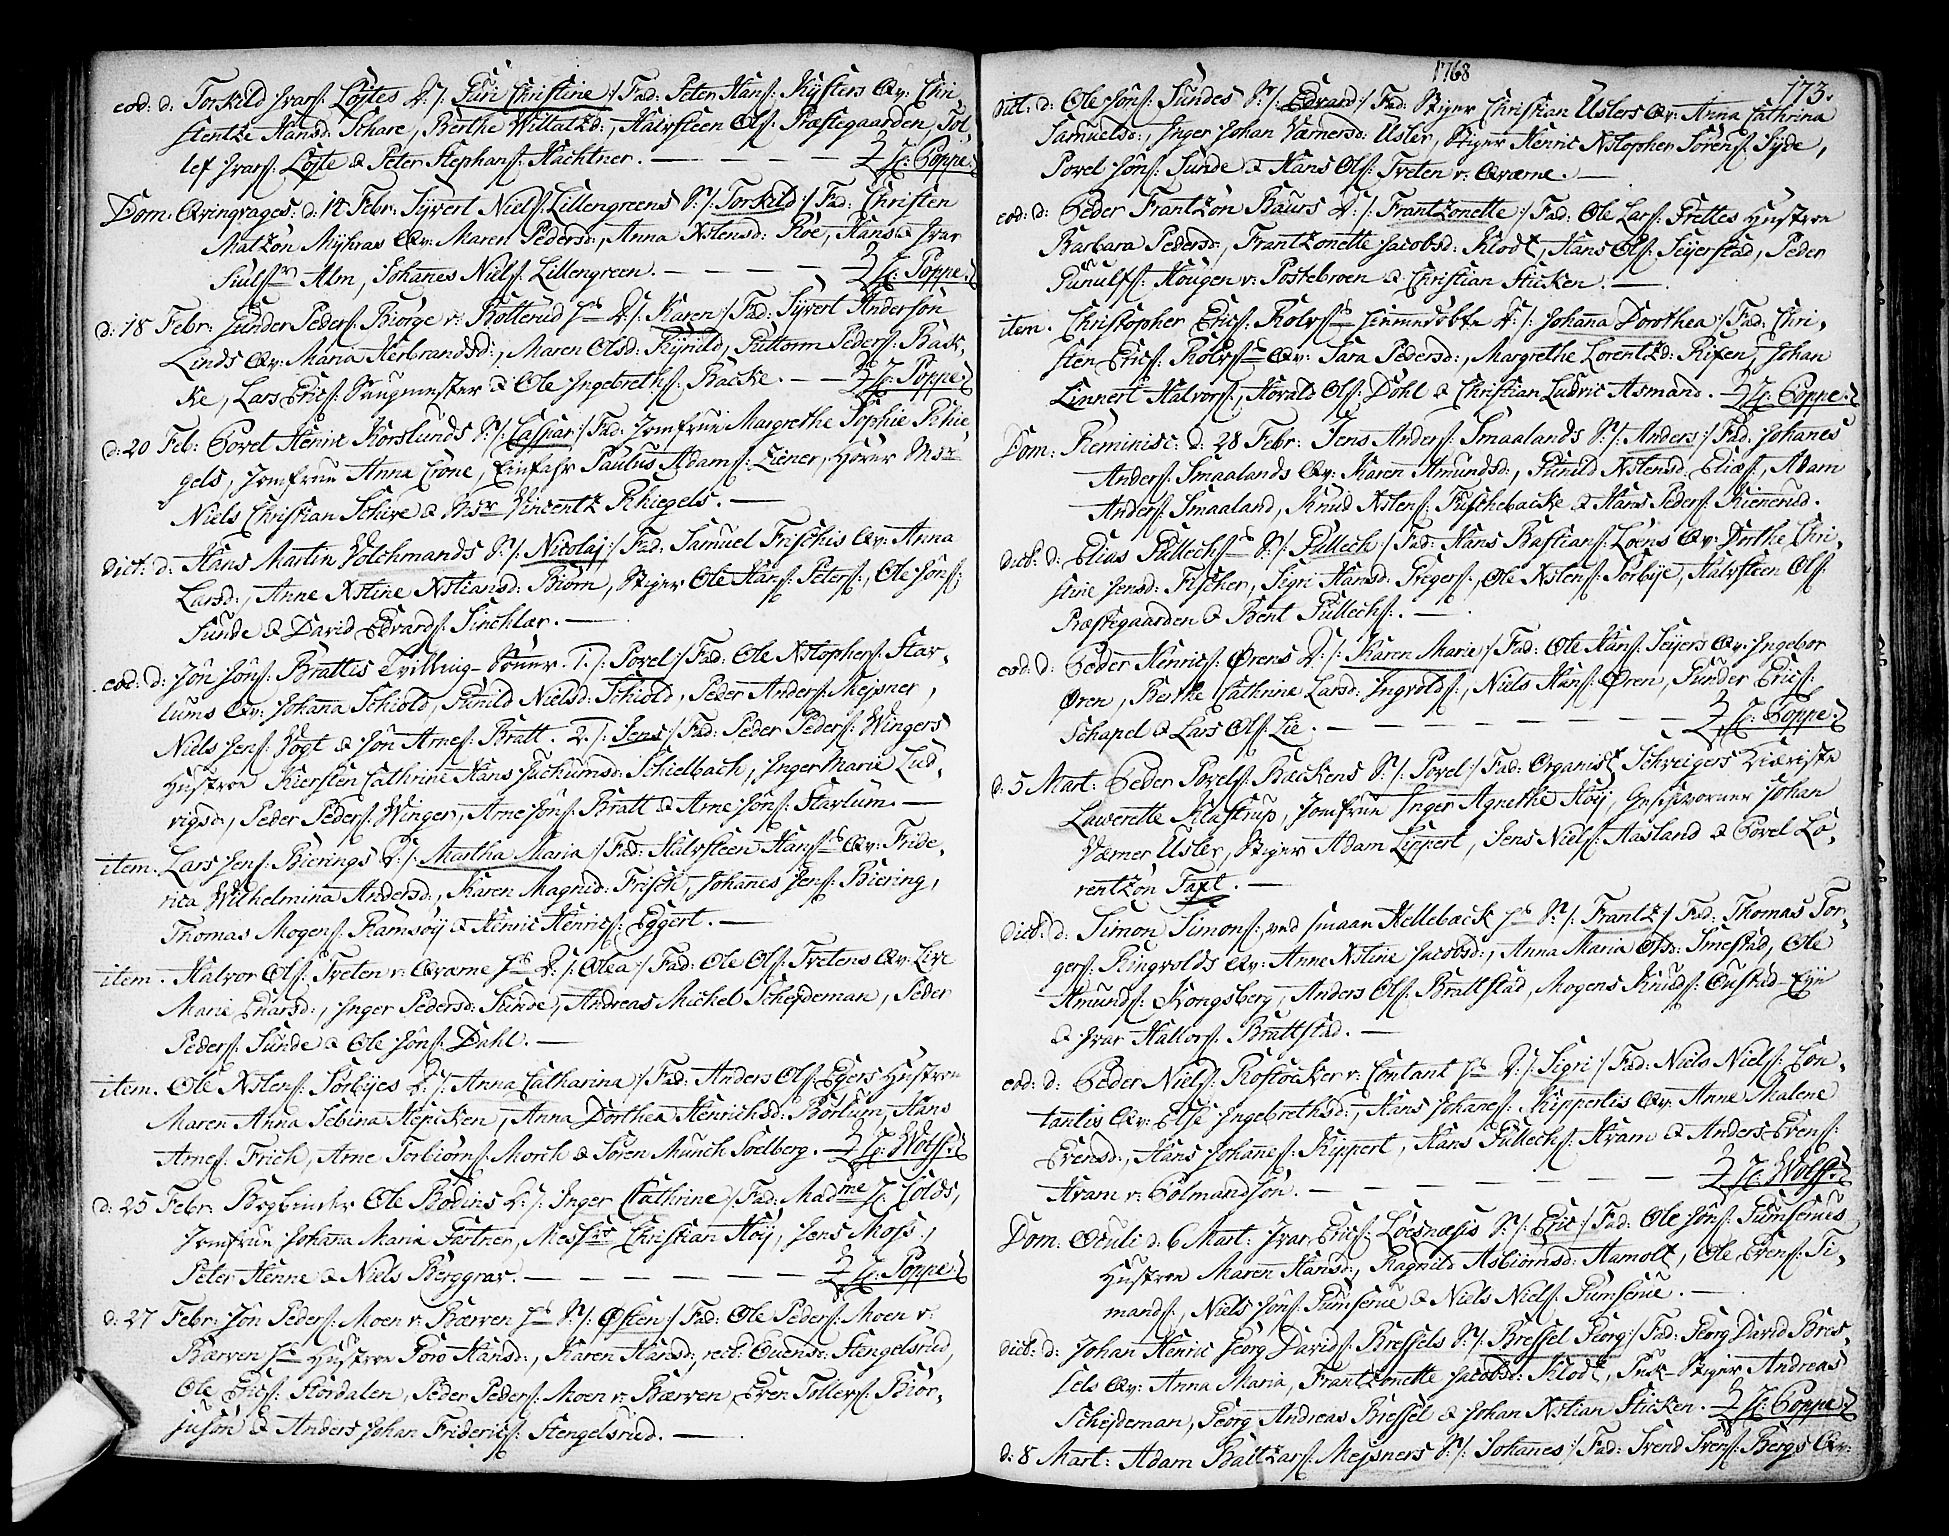 eod: d: Torkild Ivars: Löÿtes D:/: Guri Christine :/ Fad: Peter Hans: Kÿsters Qv: Chri
stentze Hansd: Schare, Berthe Willatzd:, Halvsteen Ols: Præstegaarden, Tol-
lef Ivars: Löÿte & Peter Stephans: Hachtner. — H: Poppe.
Dom: Qvinqvages: d: 14 Febr: Sÿvert Niels: Lillengreens S:/: Torkild :/ Fad: Christen
Matzön Mÿhras Qv: Maren Pedersd:, Anna Xstensd: Roe, Hans & Ivar
Alm, Johanes Niels: Lillengreen. — H: Poppe.
d: 18 Febr: Gunder Peders: Biörge v: Botterud D:/: Karen :/ Fad: Sÿvert Andersön
Linds Qv: Maria Herbrandsd:, Maren Olsd: Rÿnild, Guttorm Peders: Bak-
ke, Lars Erics: Saugmester & Ole Ingebreths: Backe. — H: Poppe.
d: 20 Feb: Povel Henric Korslunds S:/: Caspar :/ Fad: Jomfrue Margrethe Sophie Schie
gels, Jomfrue Anna Crone, Paulus Adams: Ziener, Msr
Niels Christian Schive & Msr Vincentz Schiegels. —
dict: d: Hans Martin Volchmands S:/: Nicolaj :/ Fad: Samuel Frischis Qv: Anna
Larsd:, Anne Xstine Xstiansd: Biörn, Stiger Ole Hans: Peters:, Ole Jöns:
Sunde & David Edvards: Sinchlar. —
eod: d: Jön Jöns: Brattis Tvilling-Sönner. 1. /: Povel :/ Fad: Ole Xstophers: Star-
lums Qv: Johana Schiold, Gunild Nielsd: Schiold, Peder Anders: Mejsner,
Niels Jens: Vogt & Jön Arnes: Bratt. 2. /: Jens :/ Fad: Peder Peders: Wingers
Hustroe Kiersten Cathrine Hans Juchumsd: Schielbach, Inger Marie Lud-
vigsd:, Peder Peders: Winger, Arne Jöns: Bratt & Arne Jöns: Starlum. —
item. Lars Jens: Bierings D:/: Martha Maria :/ Fad: Halvsteen Hans: Qv: Fride-
rica Wilhelmina Andersd:, Karen Magnid: Frisch, Johanes Jens: Biering,
Thomas Mogens: Ramsöÿ & Henric Henrics: Eggert. —
item. Halvor Ols: Treten v: Qværne D:/: Olea :/ Fad: Ole Ols: Tvetens Qv: Live
Marie Enarsd:, Inger Pedersd: Sunde, Andreas Michel Schejdeman, Peder
Peders: Sunde & Ole Jöns: Dahl. —
item. Ole Xstens: Sörbÿes D:/: Anna Catharina :/ Fad: Anders Ols: Egers Hustroe
Maren Anna Sebina Hepcken, Anna Dorthea Henrichsd: Rörlum, Hans
Arnes: Frich, Arne Torbiörns: Morch & Sören Munch Soelberg. — H: Wolff.
d: 25 Febr: Ole Bodins D:/: Inger Cathrine :/ Fad: Madme H: Colds,
Jomfrue Johana Maria Fartner, Messrs Christian Höÿ, Jens Moss,
Peter Henne & Niels Berggrav. — H: Poppe.
d: 27 Febr: Jön Peders: Moen v: Barven S:/: Östen :/ Fad: Ole Peders: Moen v:
Barven Hustroe Goro Hansd:, Karen Hansd:, Stengelsrud,
Ole Erics: Stordalen, Peder Peders: Moen v: Barven, Even Tollevs: Biör-
& Anders Johan Friderics: Stengelsrud. —
1768
173.
dict: d: Ole Jöns: Sundes S:/: Edvard :/ Fad: Stiger Christian Uslers Qv: Anna Cathrina
Samuelsd:, Inger Johan Varnersd: Usler, Stiger Henric Xstopher Sörens: Sÿde,
Povel Jöns: Sunde & Hans Ols: Treten v: Qværne. —
eod: d: Peder Frantzön Baurs D:/: Frantzonette :/ Fad: Ole Lars: Prettes Hustroe
Barbara Pedersd:, Frantzonette Jacobsd: Klodt, Hans Ols: Seÿerstad, Peder
Gunulfs: Hougen v: Postebroen & Christian Sticken. —
item. Christopher Erics: Rolvs: D:/: Johana Dorothea :/ Fad: Chri-
sten Erics: Rolvs: Qv: Sara Pedersd:, Margrethe Lorentzd: Rixen, Johan
Linnert Halvors:, Horald Ols: Dohl & Christian Ludvic Asmand. — H: Poppe.
Dom: Reminisc: d: 28 Febr: Jens Anders: Smaalands S:/: Anders :/ Fad: Johanes
Anders: Smaalands Qv: Karen Amundsd:, Gunild Xstensd: Elies:, Adam
Anders: Smaaland, Knud Xstens: & Hans Peders: Kienerud.
dict: d: Elias Gullechs: S:/: Gullech :/ Fad: Hans Bastians: Loens Qv: Dorthe Chri-
stine Jensd: Fischer, Sigri Hansd: Gregers:, Ole Xstens: Sörbÿe, Halvsteen Ols:
Præstegaarden & Bent Gullechs:. —
eod: d: Peder Henrics: Örens D:/: Karen Marie :/ Fad: Ole Hans: Seÿers Qv: Ingebor
Ören, Berthe Cathrine Larsd: Ingvolds:, Niels Hans: Ören, Gunder Erics:
Schapel & Lars Ols: Lie. — H: Poppe.
d: 5 Mart: Peder Povels: Backens S:/: Povel :/ Fad: Organist Schreigers Kiæriste
Lawerette Klastrup, Jomfrue Inger Agnethe Höÿ, Geschworner Johan
Værner Usler, Stiger Adam Lippert, Jens Niels: Aasland & Povel Lo-
rentzön Taxt. —
dict: d: Simon Simons: ved smaae Hellebæck S:/: Frantz :/ Fad: Thomas Tor-
gers: Ringvolds Qv: Anne Xstine Jacobsd:, Anna Maria Olsd: Smestad, Ole
Amunds: Kongsberg, Anders Ols: Brattstad, Mogens Knuds: Oustad-Eÿe
& Ivar Hallors: Brattstad. —
eod: d: Peder Niels: Rostocker v: Contant D:/: Sigri :/ Fad: Niels Niels: Con-
tantis Qv: Else Ingebrethsd:, Hans Johanes: Kippertiis Qv: Anne Malene
Evensd:, Hans Johanes: Kippert, Hans Gullechs: Kram & Anders Evens:
Kram v: Colmandsön. — H: Wolff.
Dom: Oculi d: 6 Mart: Ivar Erics: Loesnæsis S:/: Eric :/ Fad: Ole Jöns: Gumserues
Hustroe Maren Hansd:, Ragnild Asbiörnsd: Hamolt, Ole Evens: Ti-
mands:, Niels Jöns: Gumserue & Niels Niels: Gumserue. —
dict: d: Johan Henric Georg Davids: Bressels S:/: Bressel Georg :/ Fad: Georg David Bres-
sels Qv: Anna Maria, Frantzonette Jacobsd: Klodt, Stiger Andreas
Schejdeman, Georg Andreas Bressel & Johan Xstian Sticken. — H: Poppe.
d: 8 Mart: Adam Baltzars: Mejsners S:/: Johanes :/ Fad: Svend Svens: Bergs Qv: